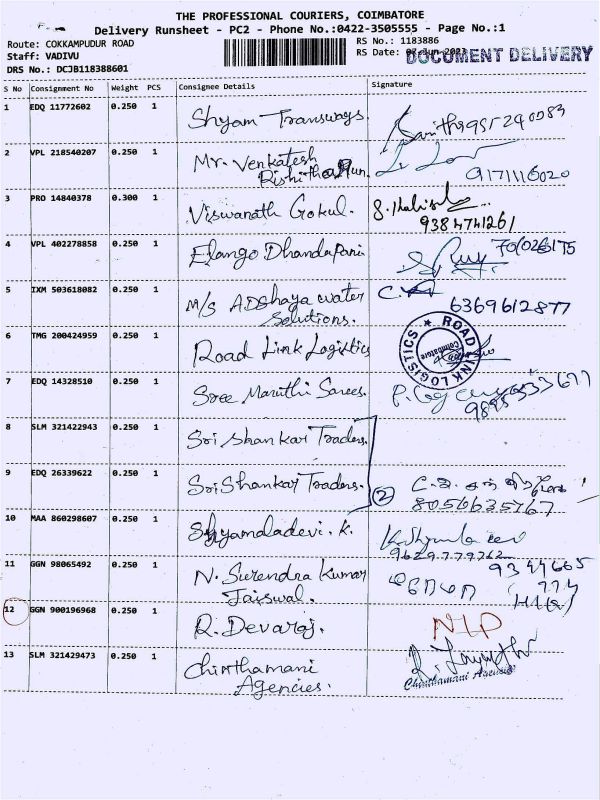 THE PROFESSIONAL COURIERS, COIMBATORE
Delivery Runsheet - PC2 - Phone No.:0422-3505555 - Page No.:1
Route: COKKAMPUDUR ROAD
RS No.: 1183886
Staff: VADIVU
RS Date:
DOCUMENT DELIVERY
DRS No.: DCJB118388601
S No Consignment No Weight PCS Consignee Details Signature
1 EDQ 11772602 0.250 1 Shyam Transways
2 VPL 218540207 0.250 1 Mr. Venkatesh
9171116020
3 PRO 14840378 0.300 1 Viswanath Gokul.
9384741261
4 VPL 402278858 0.250 1 Elango Dhandapani
5 IXM 503618082 0.250 1 M/S ADShaya water
Solutions.
6369612877
6 TMG 200424959 0.250 1 Road Link Logistics
ROAD LINK LOGISTICS
Coimbatore
7 EDQ 14328510 0.250 1 Sree Maruthi Sarees.
8 SLM 321422943 0.250 1 Sri Shankar Traders.
9 EDQ 26339622 0.250 1 Sri Shankar Traders.
2
8056635767
10 MAA 860298607 0.250 1 Shyamaladevi. K.
9629779762
11 GGN 98065492 0.250 1 N. Surendra Kumar
Jaiswal.
12 GGN 900196968 0.250 1 R. Devaraj.
13 SLM 321429473 0.250 1 Chinthamani
Agencies.
Chinthamani Agencies